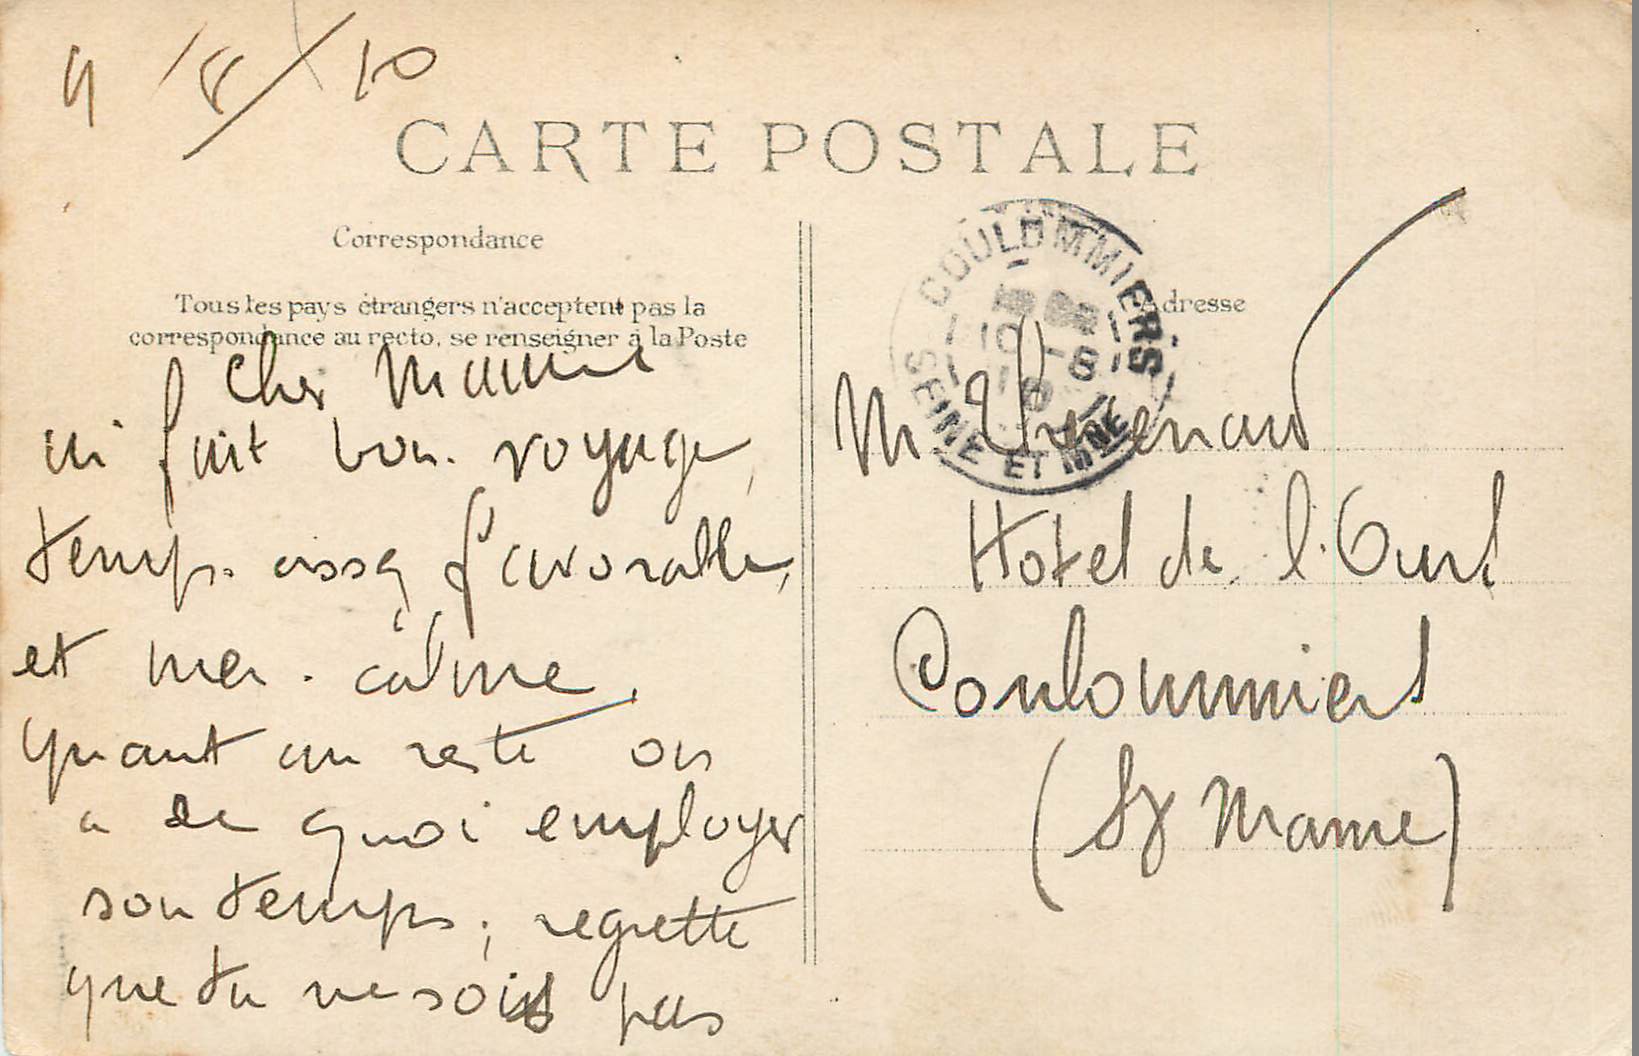 9/8/10
CARTE POSTALE
Correspondance
Tous les pays étrangers n'acceptent pas la
correspondance au recto, se renseigner à la Poste
Cher
ai fait bon voyage,
temps assez favorable,
et mer calme.
Quant au reste on
a de quoi employer
son temps, regrette
que tu ne sois pas
COULOMMIERS
10 - 8
10
SEINE ET MNE
Adresse
M
Hotel de l'Ours
Coulommiers
(St Marne)